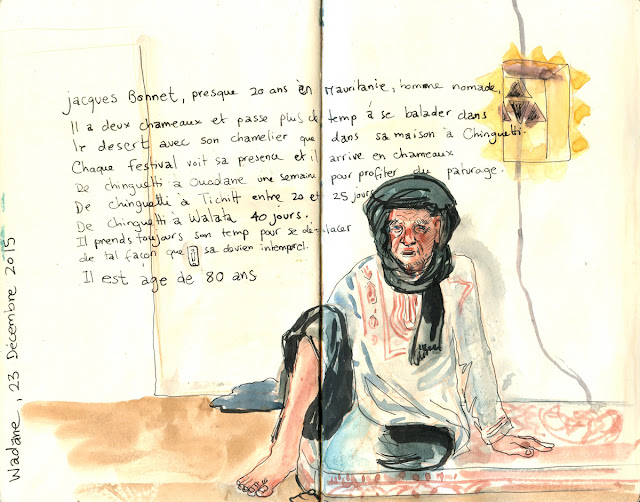 jacques Bonnet, presque 20 ans en Mauritanie, homme nomade,
Il a deux chameaux et passe plus de temp á se balader dans
le desert avec son chamelier que dans sa maison à Chinguetti.
Chaque festival voit sa presence et il arrive en chameaux
De chinguetti à Ouadane une semaine pour profiter du paturage.
De chinguetti à Tichitt entre 20 et 25 jours
De Chinguetti à Walata 40 jours.
Il prends toujours son temp pour se deplacer
de tal façon que sa devien intemporel.
Il est age de 80 ans
Wadane, 23 Décembre 2015